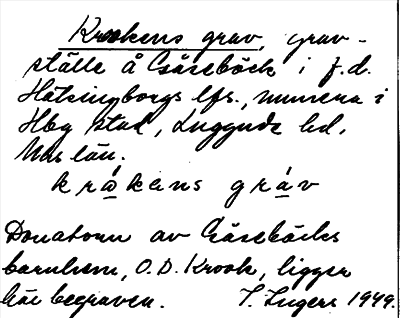 Krookens grav, grav-
ställe å Gåsebäck i f.d.
Hälsingborgs lfs., numera i
Hbg stad, Luggude hd,
Mns län.
kråkens grav
Donatorn av Gåsebäcks
barnhem, O.D. Krook, ligger
här begraven. I. Ingers 1949.